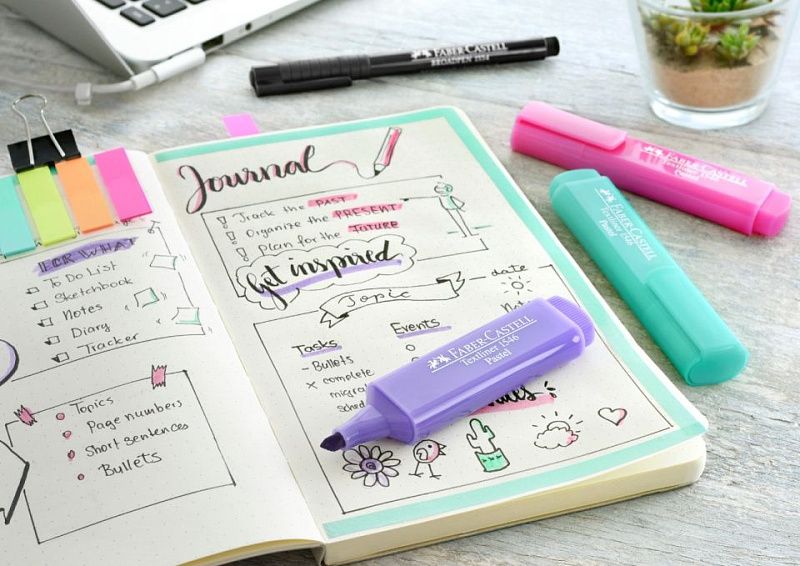 FOR WHAT
To Do List
Sketchbook
Notes
Diary
Tracker
Topics
Page numbers
Short sentences
Bullets
Journal
Track the PAST
Organize the PRESENT
Plan for the FUTURE
Get inspired
Topic
date
Tasks
Events
- Bullets
x complete
FABER-CASTELL
FABER-CASTELL
Textliner 1546
Pastel
FABER-CASTELL
Textliner 1546
Pastel
FABER-CASTELL
Textliner 1546
Pastel